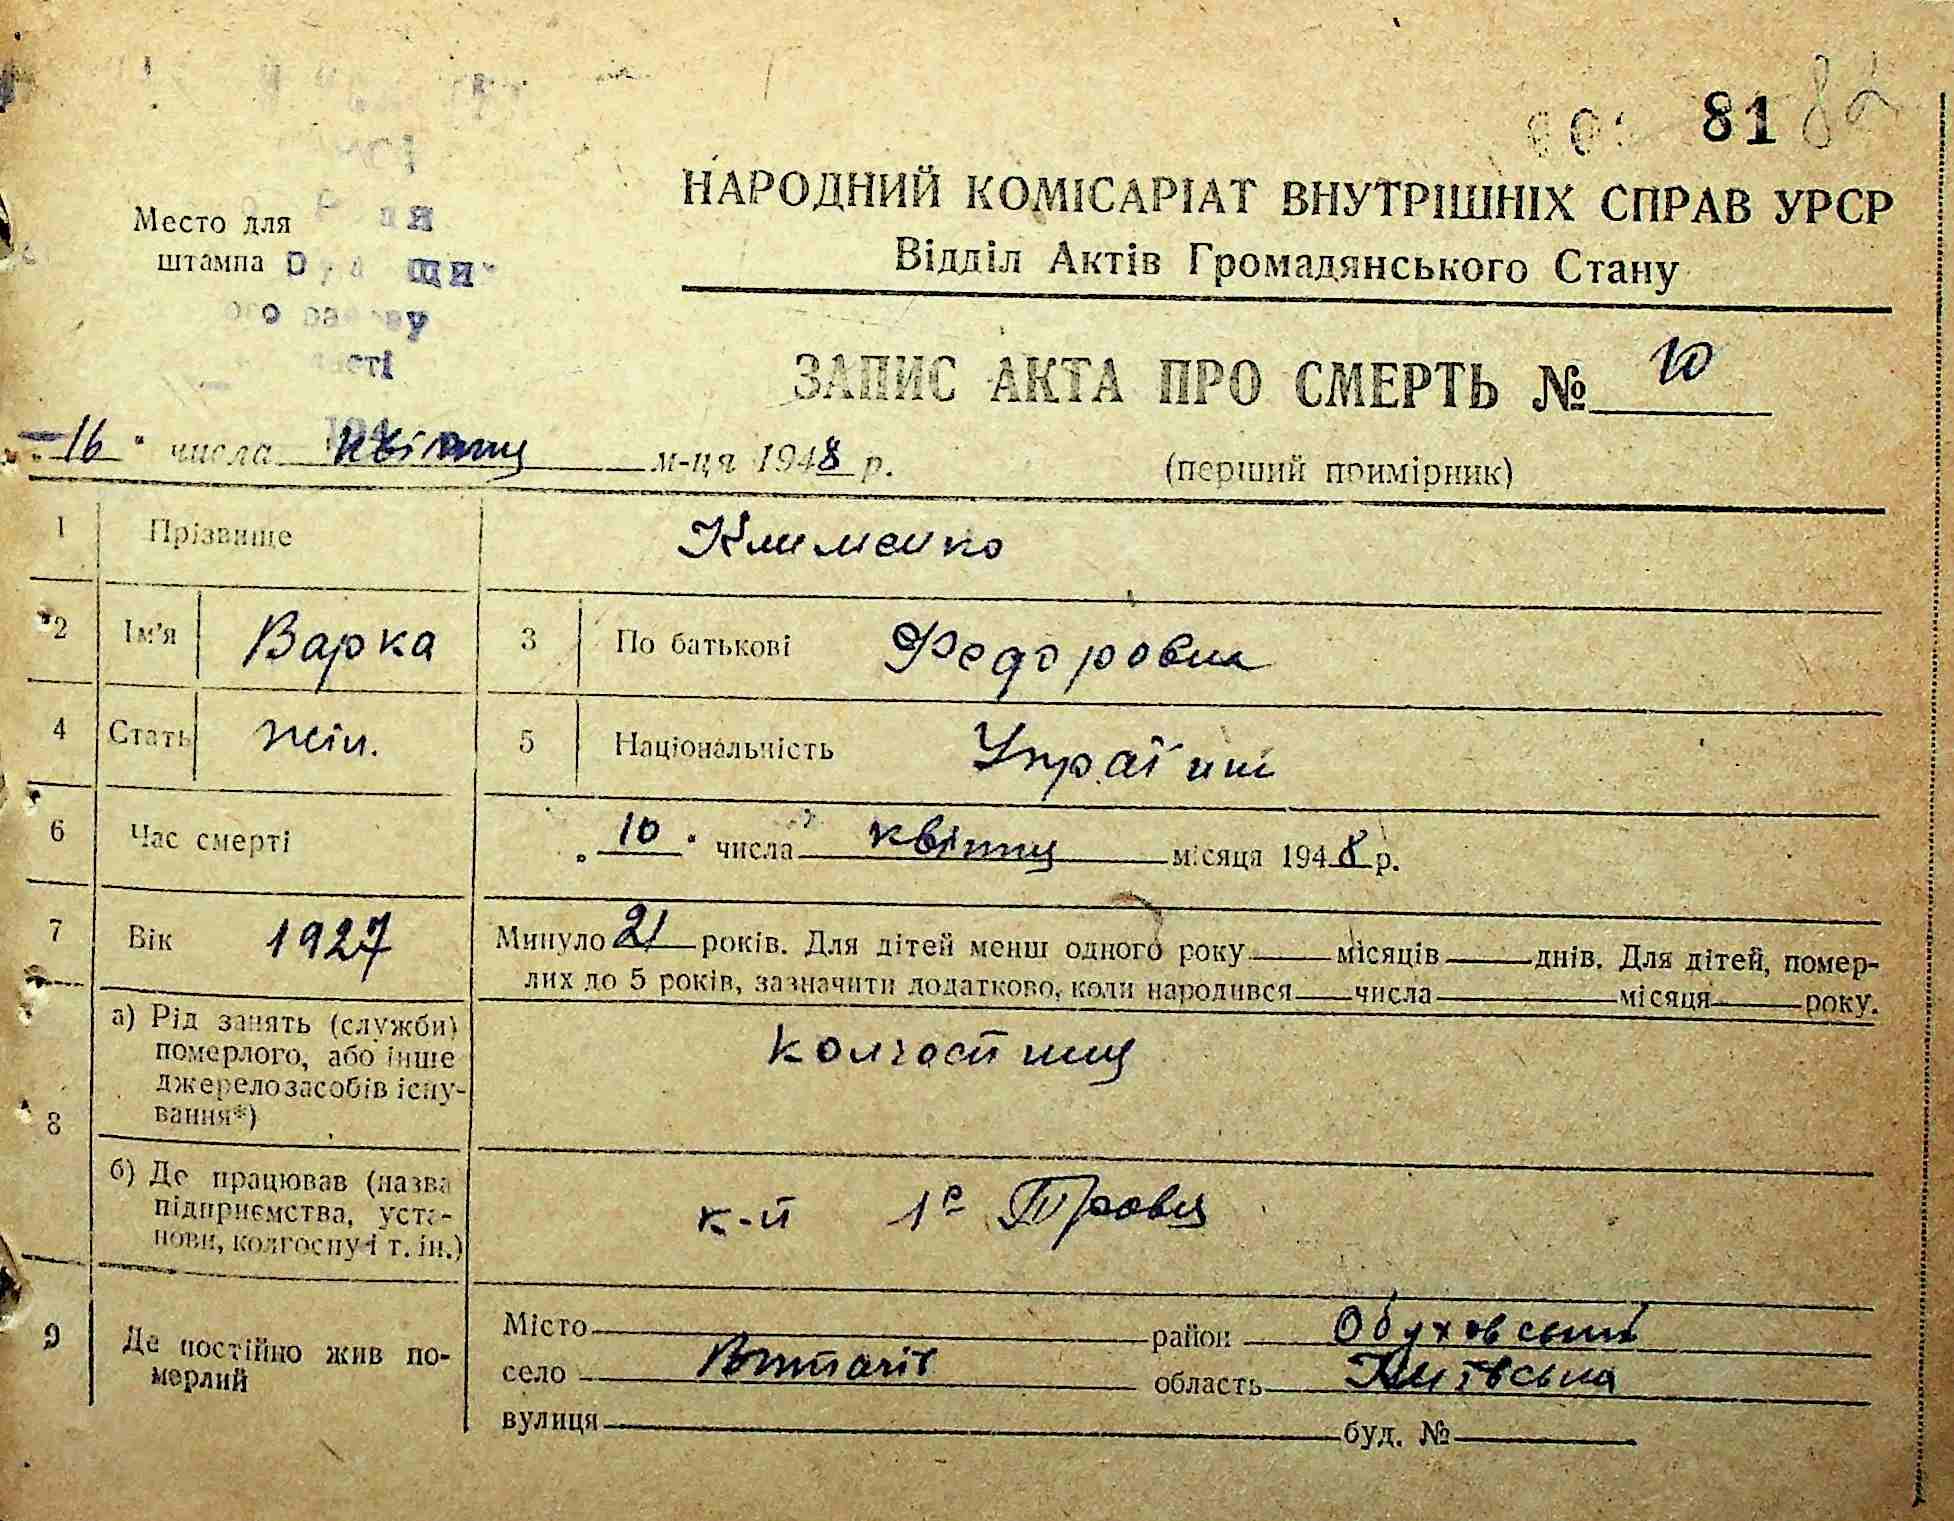 81 82
НАРОДНИЙ КОМІСАРІАТ ВНУТРІШНІХ СПРАВ УРСР
Відділ Актів Громадянського Стану
Место для
штампа
ЗАПИС АКТА ПРО СМЕРТЬ № 10
"16" числа квітня м-ця 1948 р. (перший примірник)
1 Прізвище Клименко
2 Ім'я Варка 3 По батькові Федоровна
4 Стать жін. 5 Національність
6 Час смерті "10" числа квітня місяця 1948 р.
7 Вік 1927 Минуло 21 років. Для дітей менш одного року місяців днів. Для дітей, помер-
лих до 5 років, зазначити додатково, коли народився числа місяця року.
8 а) Рід занять (служби)
померлого, або інше
джерело засобів існу-
вання*)
б) Де працював (назва
підприємства, уста-
нови, колгоспу і т. ін.)
к-п 1е Травня
9 Де постійно жив по-
мерлий
Місто район Обуховський
село Витачів область Київська
вулиця буд. №